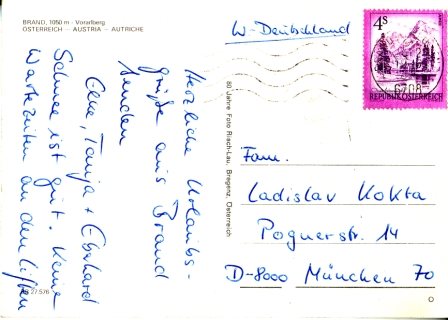 BRAND, 1050 m - Vorarlberg
ÖSTERREICH - AUSTRIA - AUTRICHE
Herzliche Urlaubs-
grüße aus Brand
senden
Tanja + Eberhard
Schnee ist gut. Keine
Wartezeiten an den Liften
27.576
80 Jahre Foto Risch-Lau, Bregenz, Österreich
W-Deutschland
4S
REPUBLIK ÖSTERREICH
6708
Fam.
Ladislav Kokta
Pognerstr. 14
D-8000 München 70